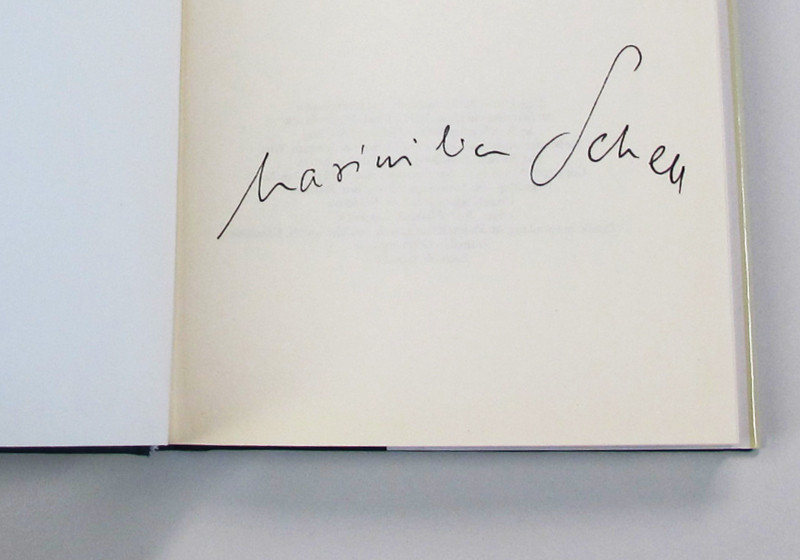 Maximilian Schell